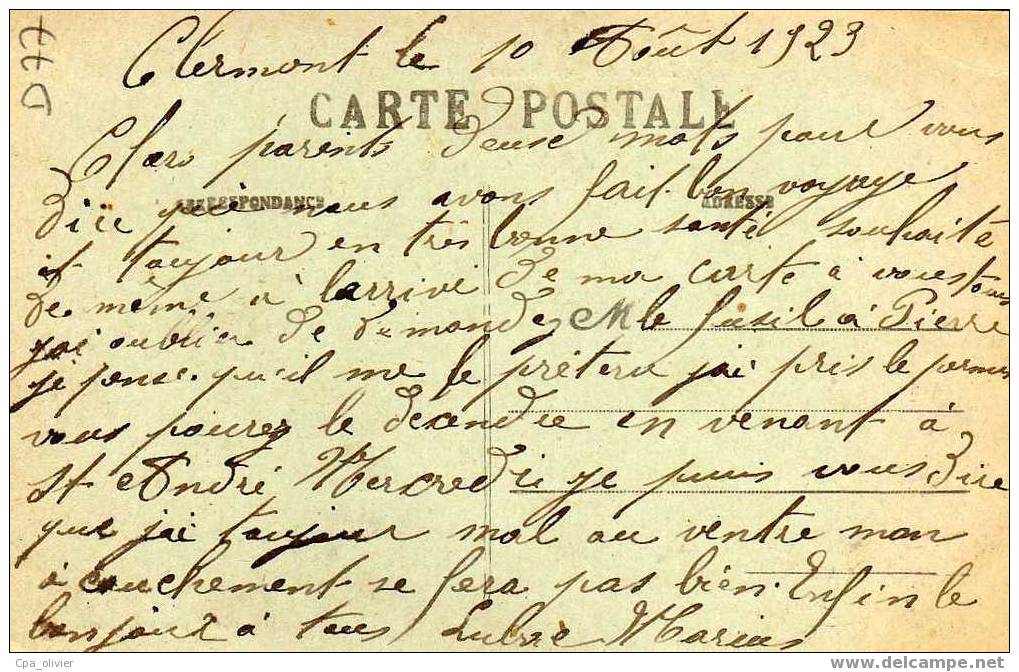 Clermont le 10 Août 1923
CARTE POSTALE
Chers parents deuse mots pour vous
CORRESPONDANCE
ADRESSE
dire que nous avons fait bon voyage
et toujour en très bonne santé souhaite
de même a larrivé de ma carte a vous tous
jai oublier de demandez le fusil a Pierre
je pense qu'il me le prétera jai pris le permis
vous pourez le décendre en venant à
St André Mercredi je puis vous dire
que jai toujour mal au ventre mon
acouchement se fera pas bien. Enfin le
bonjour a tous Marius
D77
Cpa_olivier
http://www.delcampe.net